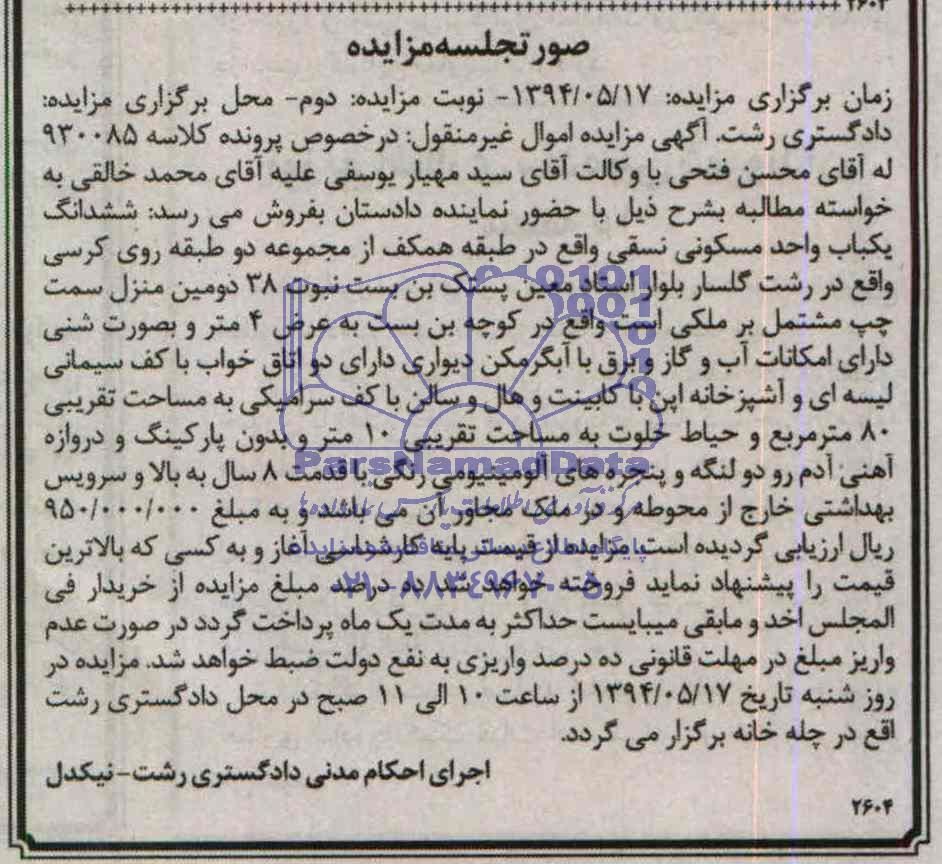 ۲۶۰۳
صورتجلسه مزایده
زمان برگزاری مزایده: ۱۳۹۴/۰۵/۱۷- نوبت مزایده: دوم- محل برگزاری مزایده:
دادگستری رشت. آگهی مزایده اموال غیرمنقول: درخصوص پرونده کلاسه ۹۳۰۰۸۵
له آقای محسن فتحی با وکالت آقای سید مهیار یوسفی علیه آقای محمد خالقی به
خواسته مطالبه بشرح ذیل با حضور نماینده دادستان بفروش می رسد: ششدانگ
یکباب واحد مسکونی نسقی واقع در طبقه همکف از مجموعه دو طبقه روی کرسی
واقع در رشت گلسار بلوار استاد معین پستک بن بست نبوت ۳۸ دومین منزل سمت
چپ مشتمل بر ملکی است واقع در کوچه بن بست به عرض ۴ متر و بصورت شنی
دارای امکانات آب و گاز و برق با آبگرمکن دیواری دارای دو اتاق خواب با کف سیمانی
لیسه ای و آشپزخانه اپن با کابینت و هال و سالن با کف سرامیکی به مساحت تقریبی
۸۰ مترمربع و حیاط خلوت به مساحت تقریبی ۱۰ متر و بدون پارکینگ و دروازه
ParsNamadData
آهنی آدم رو دو لنگه و پنجره های آلومینیومی رنگی با قدمت ۸ سال به بالا و سرویس
بهداشتی خارج از محوطه و در ملک مجاور آن می باشد و به مبلغ ۹۵۰/۰۰۰/۰۰۰
ریال ارزیابی گردیده است. مزایده از قیمت پایه کارشناسی آغاز و به کسی که بالاترین
قیمت را پیشنهاد نماید فروخته خواهد شد ده درصد مبلغ مزایده از خریدار فی
۰۲۱-۸۸۳۴۹۶۷۰-۵
المجلس اخد و مابقی میبایست حداکثر به مدت یک ماه پرداخت گردد در صورت عدم
واریز مبلغ در مهلت قانونی ده درصد واریزی به نفع دولت ضبط خواهد شد. مزایده در
روز شنبه تاریخ ۱۳۹۴/۰۵/۱۷ از ساعت ۱۰ الی ۱۱ صبح در محل دادگستری رشت
اقع در چله خانه برگزار می گردد.
اجرای احکام مدنی دادگستری رشت- نیکدل
۲۶۰۴